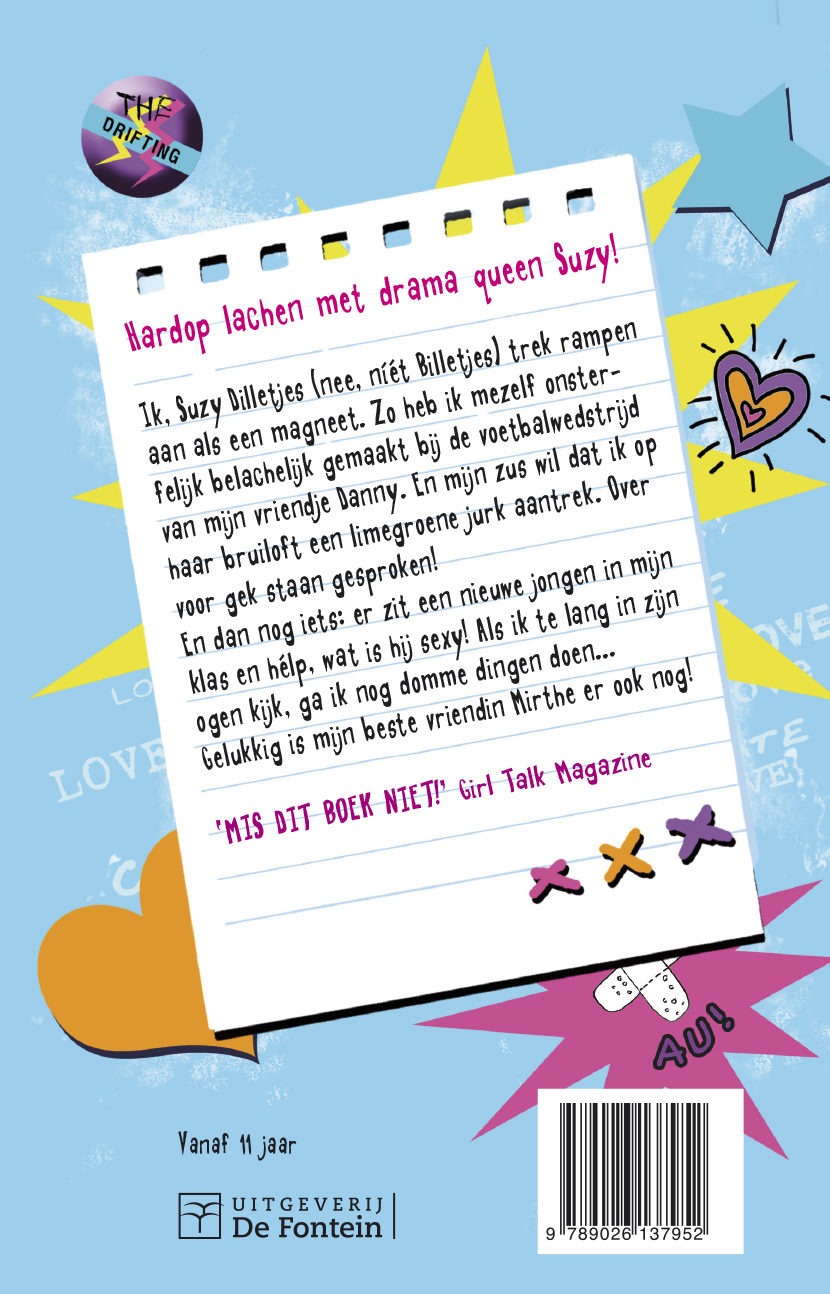 THE
DRIFTING
Hardop lachen met drama queen Suzy!
Ik, Suzy Dilletjes (nee, níét Billetjes) trek rampen
aan als een magneet. Zo heb ik mezelf onster-
felijk belachelijk gemaakt bij de voetbalwedstrijd
van mijn vriendje Danny. En mijn zus wil dat ik op
haar bruiloft een limegroene jurk aantrek. Over
voor gek staan gesproken!
En dan nog iets: er zit een nieuwe jongen in mijn
klas en hélp, wat is hij sexy! Als ik te lang in zijn
ogen kijk, ga ik nog domme dingen doen...
Gelukkig is mijn beste vriendin Mirthe er ook nog!
LOVE
'MIS DIT BOEK NIET!' Girl Talk Magazine
AU!
Vanaf 11 jaar
UITGEVERIJ
De Fontein
9 789026 137952